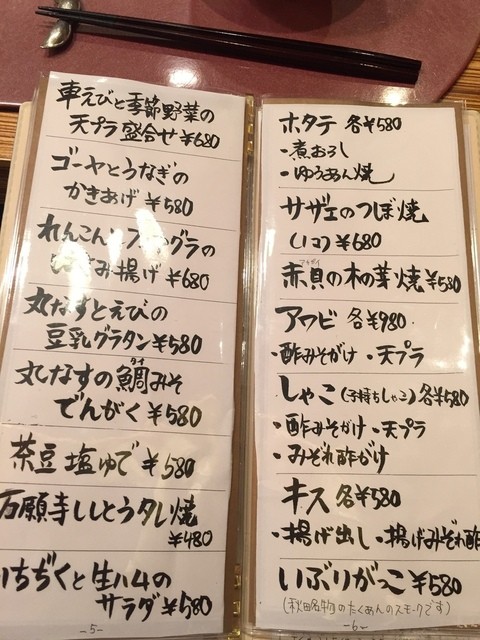 車えびと季節野菜の
天プラ盛合せ ¥680
ゴーヤとうなぎの
かきあげ ¥580
れんこんと
はさみ揚げ ¥680
丸なすとえびの
豆乳グラタン ¥580
丸なすの鯛みそ
でんがく ¥580
茶豆 塩ゆで ¥580
万願寺ししとうタレ焼
¥480
いちぢくと生ハムの
サラダ ¥580
-5-
ホタテ 各¥580
・煮おろし
・ゆうあん焼
サザエのつぼ焼
(1コ) ¥680
赤貝の木の芽焼 ¥580
アワビ 各¥980
・酢みそがけ ・天プラ
しゃこ(子持ちしゃこ) 各¥580
・酢みそがけ ・天プラ
・みぞれ酢がけ
キス 各¥580
・揚げ出し ・揚げみぞれ酢
いぶりがっこ ¥580
(秋田名物のたくあんのスモークです)
-6-